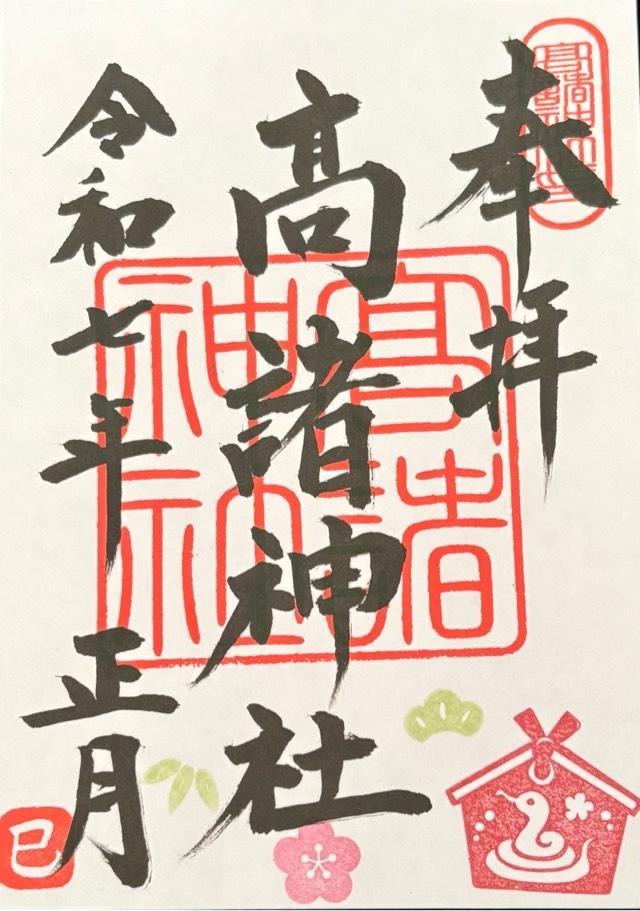 奉拝
高諸神社
令和七年 正月
高諸神社
高諸神社
巳